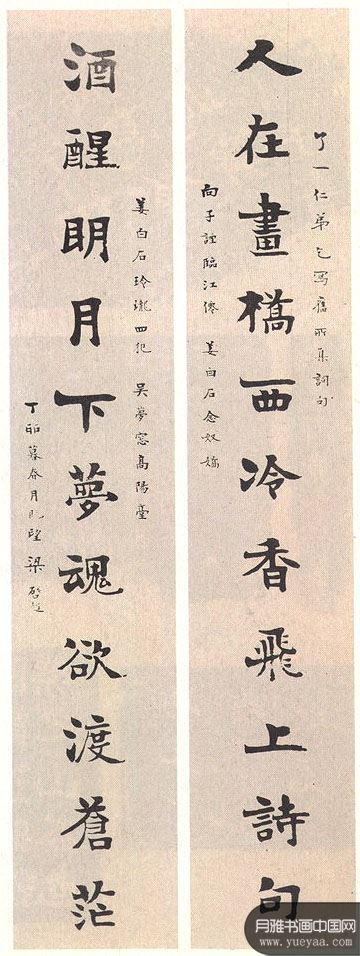 了一仁弟乞寫舊所集詞句
人在畫橋西冷香飛上詩句
向子諲臨江僊 姜白石念奴嬌
姜白石玲瓏四犯 吳夢窗高陽臺
酒醒明月下夢魂欲渡蒼茫
丁卯暮春月既望 梁啓超
月雅书画中国网
www.yueyaa.com